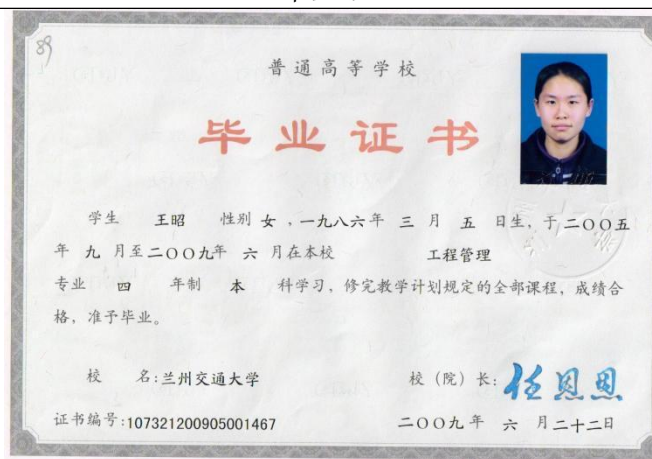 89
普通高等学校
毕业证书
学生 王昭 性别 女 ，一九八六年 三 月 五 日生，于二〇〇五
年 九 月至二〇〇九年 六 月在本校 工程管理
专业 四 年制 本 科学习，修完教学计划规定的全部课程，成绩合
格，准予毕业。
校 名:兰州交通大学 校（院）长: 任恩恩
证书编号:107321200905001467 二〇〇九年 六 月二十二日